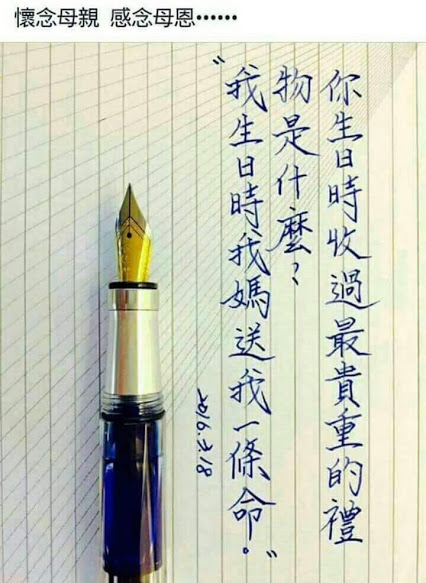 懷念母親 感念母恩……
你生日時收過最貴重的禮
物是什麼?
"我生日時我媽送我一條命。"